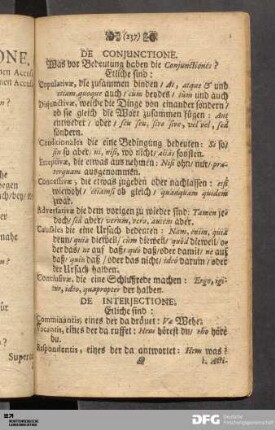 (237)
DE CONJUNCTIONE.
Was vor Bedeutung haben die Conjunctiones?
Etliche sind:
Copulativæ, die zusammen binden / Ac, atque & und
etiam, quoque auch / cum beydes / tùm und auch
Disjunctivæ, welche die Dinge von einander sondern /
ob sie gleich die Wort zusammen fügen: Aut
entweder / oder / seu, sive, vel, sed
sondern.
Conditionales die eine Bedingung bedeuten: Si so/
sin so aber ni, nisi, wo nicht / aliàs sonsten.
Exceptivæ, die etwas aus nehmen: Nisi ohn / nur / præ-
terquam ausgenommen.
Concessivæ, die etwas zugeben oder nachlassen: etsi
wiewohl / etiamsi ob gleich / quidem
zwar.
Adversativæ die dem vorigen zu wieder sind: Tamen je-
doch / sed aber / verum, vero, autem aber.
Causales die eine Ursach bedeuten: Nam, enim, quia
denn / quia dieweil / cùm dieweil / quòd dieweil / oder
der das / ut auf daß / quò daß / oder damit / ne auf
daß / quin daß / oder das nicht / ideò darum / oder
der Ursach halben.
Conclusivæ, die eine Schlußrede machen: Ergo, igi-
tur, ideo, quapropter der halben.
DE INTERJECTIONE.
Etliche sind:
Comminantis, eines der da dräuet: Væ Wehe,
Vocantis, eines der da ruffet: Heus hörest du / höre
du.
Respondentis, eines der da antwortet: Hem was?
ONE,
nen Accus
nen Accus.
n?
a?
begen
nahe
r
n?
Superis
DFG
Deutsche
Forschungsgemeinschaft